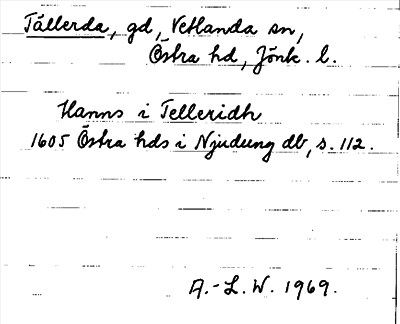 Tållerda, gd, Vetlanda sn,
Östra hd, Jönk. l.
Hanns i Telleridh
1605 Östra hds i Njudung db, s. 112.
A.-L. W. 1969.